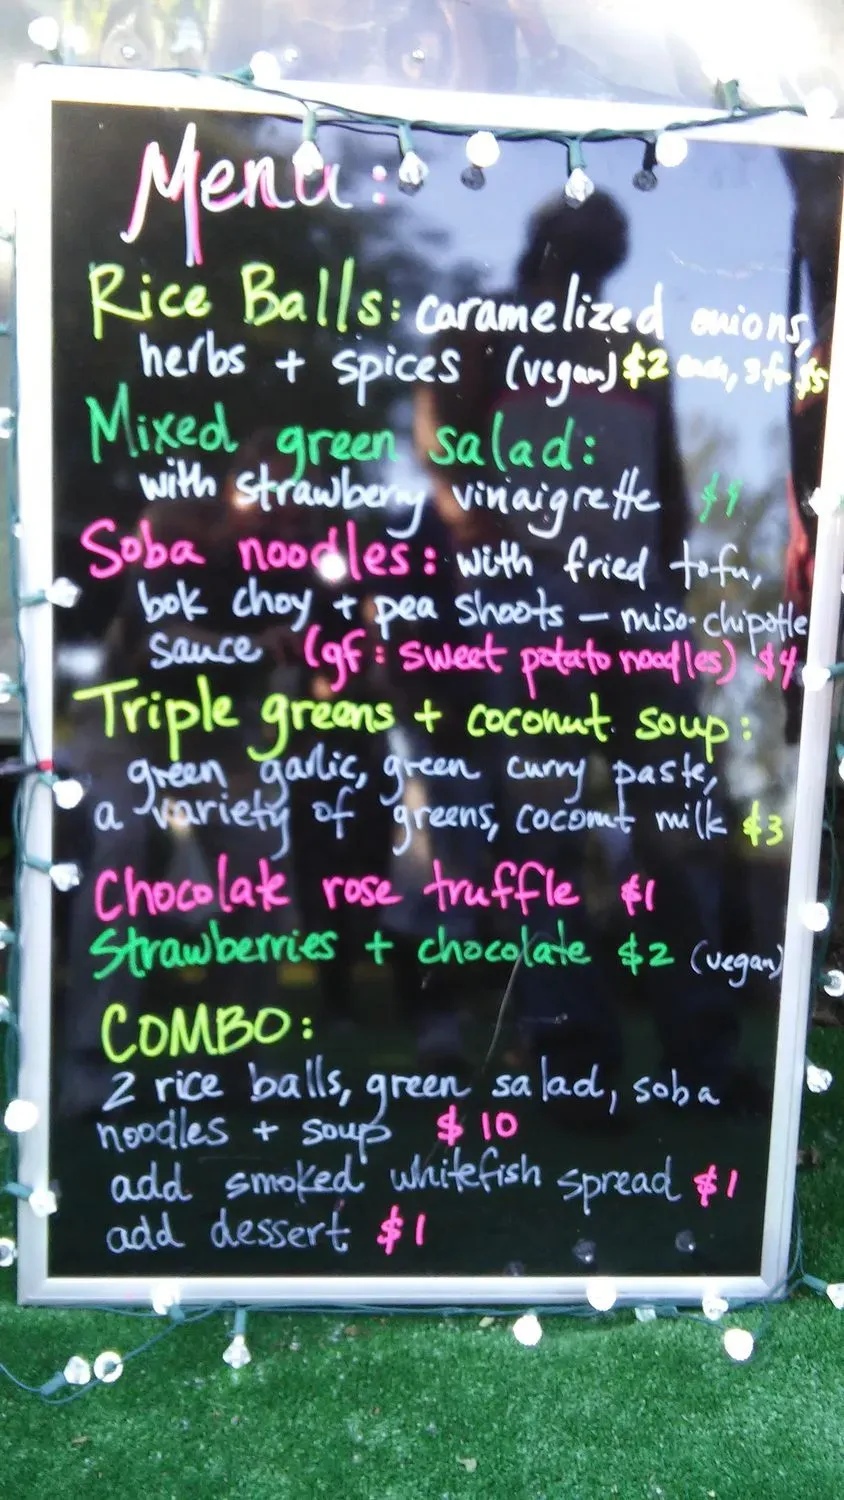 Menu:
Rice Balls: caramelized onions,
herbs + spices (vegan) $2 each, 3 for $5
Mixed green salad:
with strawberry vinaigrette
Soba noodles: with fried tofu,
bok choy + pea shoots – miso-chipotle
sauce (gf: sweet potato noodles) $4
Triple greens + coconut soup:
green garlic, green curry paste,
a variety of greens, coconut milk $3
Chocolate rose truffle $1
Strawberries + chocolate $2 (vegan)
COMBO:
2 rice balls, green salad, soba
noodles + soup $10
add smoked whitefish spread $1
add dessert $1